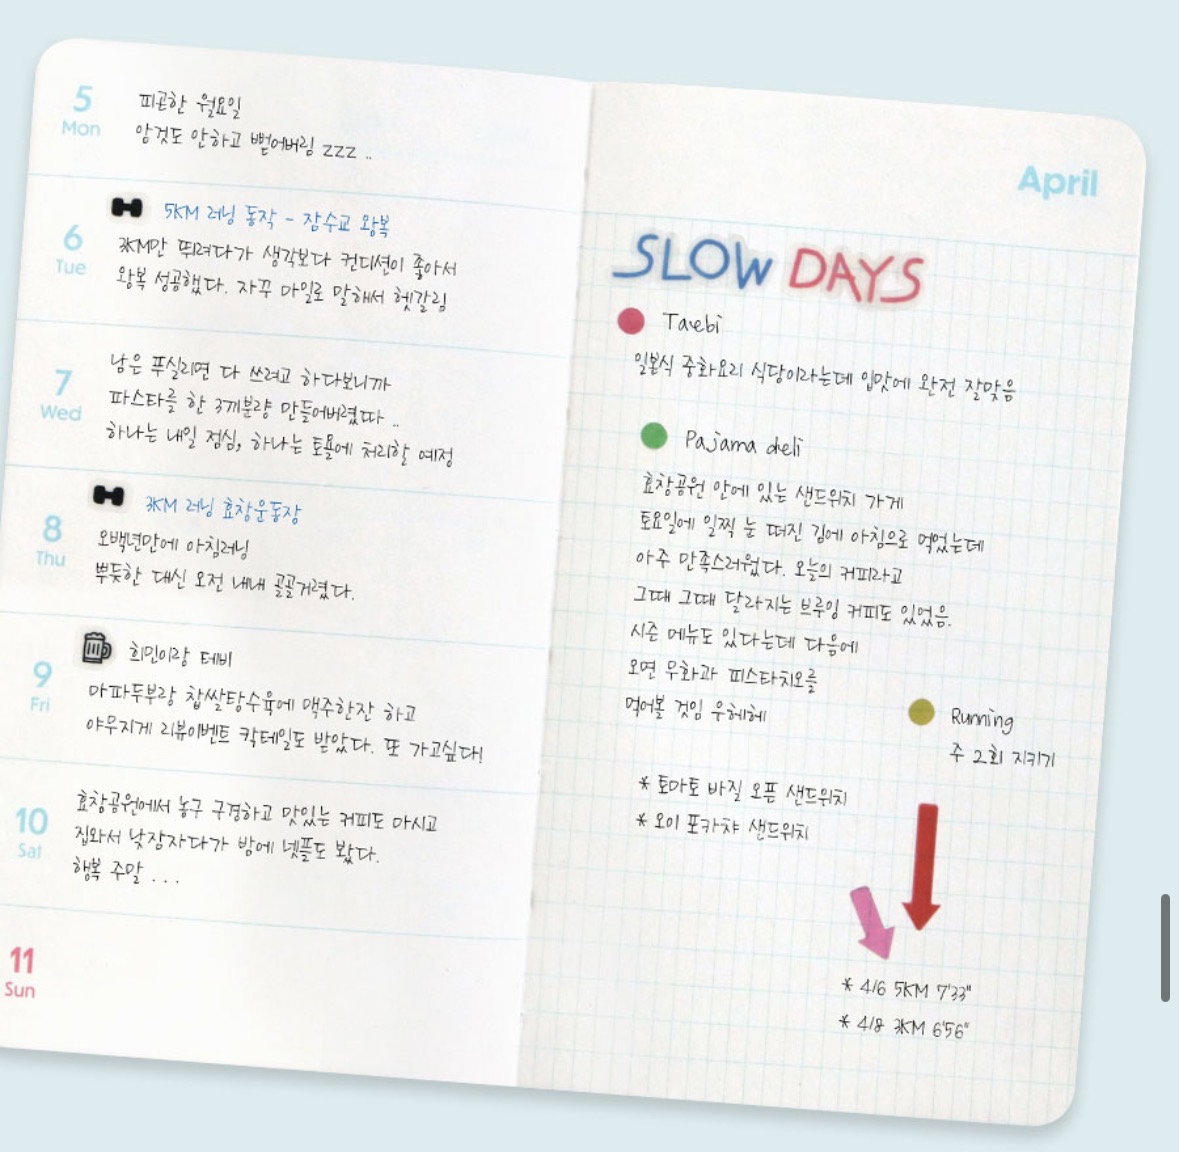 5
Mon
피곤한 월요일
암것도 안하고 뻗어버림 zzz ..
6
Tue
5KM 러닝 동작 - 잠수교 왕복
3KM만 뛰려다가 생각보다 컨디션이 좋아서
왕복 성공했다. 자꾸 마일로 말해서 헷갈림
7
Wed
남은 푸실리면 다 쓰려고 하다보니까
파스타를 한 3끼분량 만들어버렸따 ..
하나는 내일 점심, 하나는 토욜에 처리할 예정
8
Thu
3KM 러닝 효창운동장
오백년만에 아침러닝
뿌듯한 대신 오전 내내 골골거렸다.
9
Fri
희민이랑 테비
마파두부랑 찹쌀탕수육에 맥주한잔 하고
야무지게 리뷰이벤트 칵테일도 받았다. 또 가고싶다!
10
Sat
효창공원에서 농구 구경하고 맛있는 커피도 마시고
집와서 낮잠자다가 밤에 넷플도 봤다.
행복 주말 . . .
11
Sun
April
SLOW DAYS
Taebi
일본식 중화요리 식당이라는데 입맛에 완전 잘맞음
Pajama deli
효창공원 안에 있는 샌드위치 가게
토요일에 일찍 눈 떠진 김에 아침으로 먹었는데
아주 만족스러웠다. 오늘의 커피라고
그때 그때 달라지는 브루잉 커피도 있었음.
시즌 메뉴도 있다는데 다음에
오면 무화과 피스타치오를
먹어볼 것임 우헤헤
* 토마토 바질 오픈 샌드위치
* 오이 포카챠 샌드위치
Running
주 2회 지키기
* 4/6 5KM 7'33"
* 4/8 3KM 6'56"